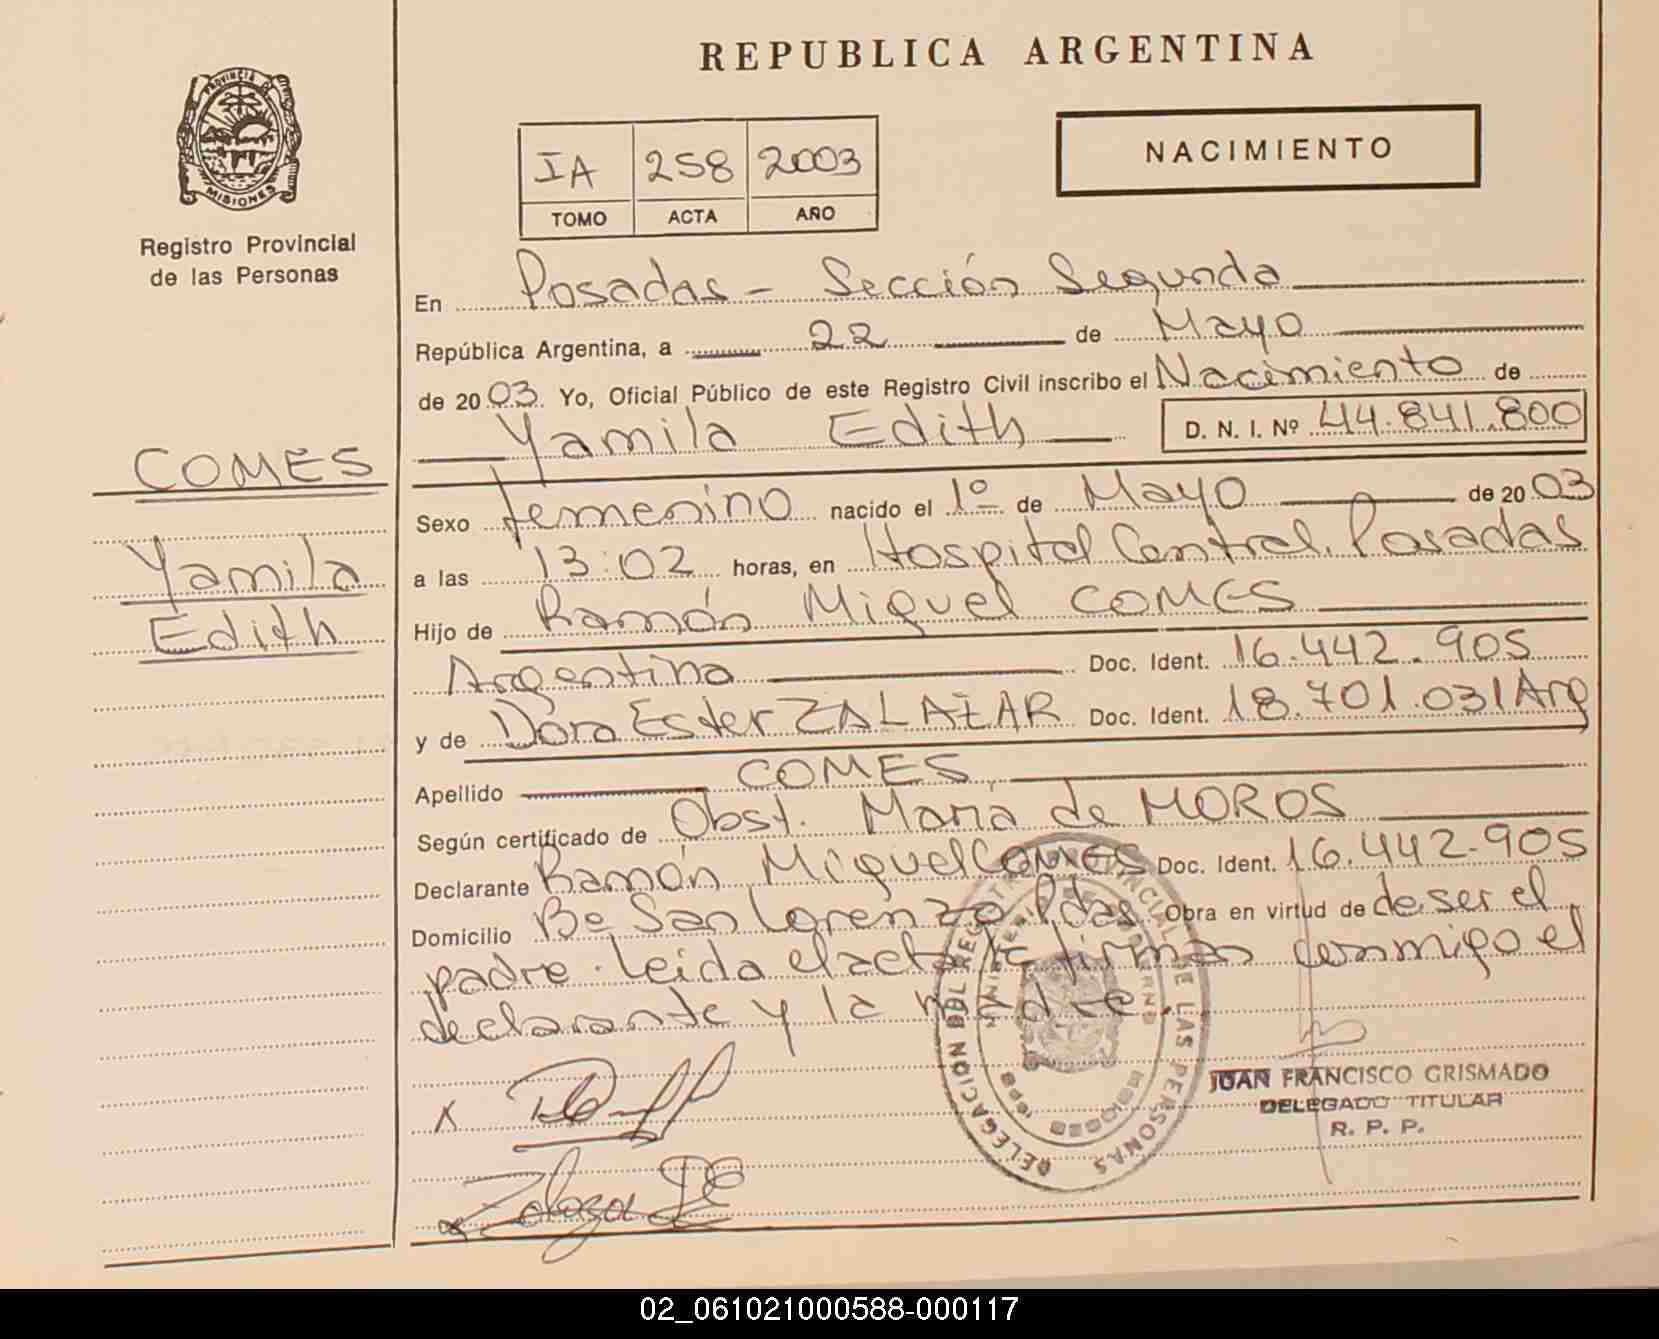 REPUBLICA ARGENTINA
PROVINCIA DE
MISIONES
Registro Provincial
de las Personas
IA 258 2003
TOMO ACTA AÑO
NACIMIENTO
En Posadas - Sección Segunda
República Argentina, a 22 de Mayo
de 2003 Yo, Oficial Público de este Registro Civil inscribo el Nacimiento de
Yamila Edith D. N. I. Nº 44.841.800
COMES
Yamila
Edith
Sexo femenino nacido el 1º de Mayo de 2003
a las 13:02 horas, en Hospital Central. Posadas
Hijo de Ramón Miguel COMES
Argentina Doc. Ident. 16.442.905
y de Dora Ester ZALAZAR Doc. Ident. 18.701.031 Arg
Apellido COMES
Según certificado de Obst. María de MOROS
Declarante Ramón Miguel COMES Doc. Ident. 16.442.905
Domicilio Bº San Lorenzo. Pdas. Obra en virtud de de ser el
padre. Leida el acta la firman conmigo el
declarante y la madre.
DELEGACION DEL REGISTRO PROVINCIAL DE LAS PERSONAS
MINISTERIO DE GOBIERNO
JUAN FRANCISCO GRISMADO
DELEGADO TITULAR
R. P. P.
X
Zalazar DE
02_061021000588-000117